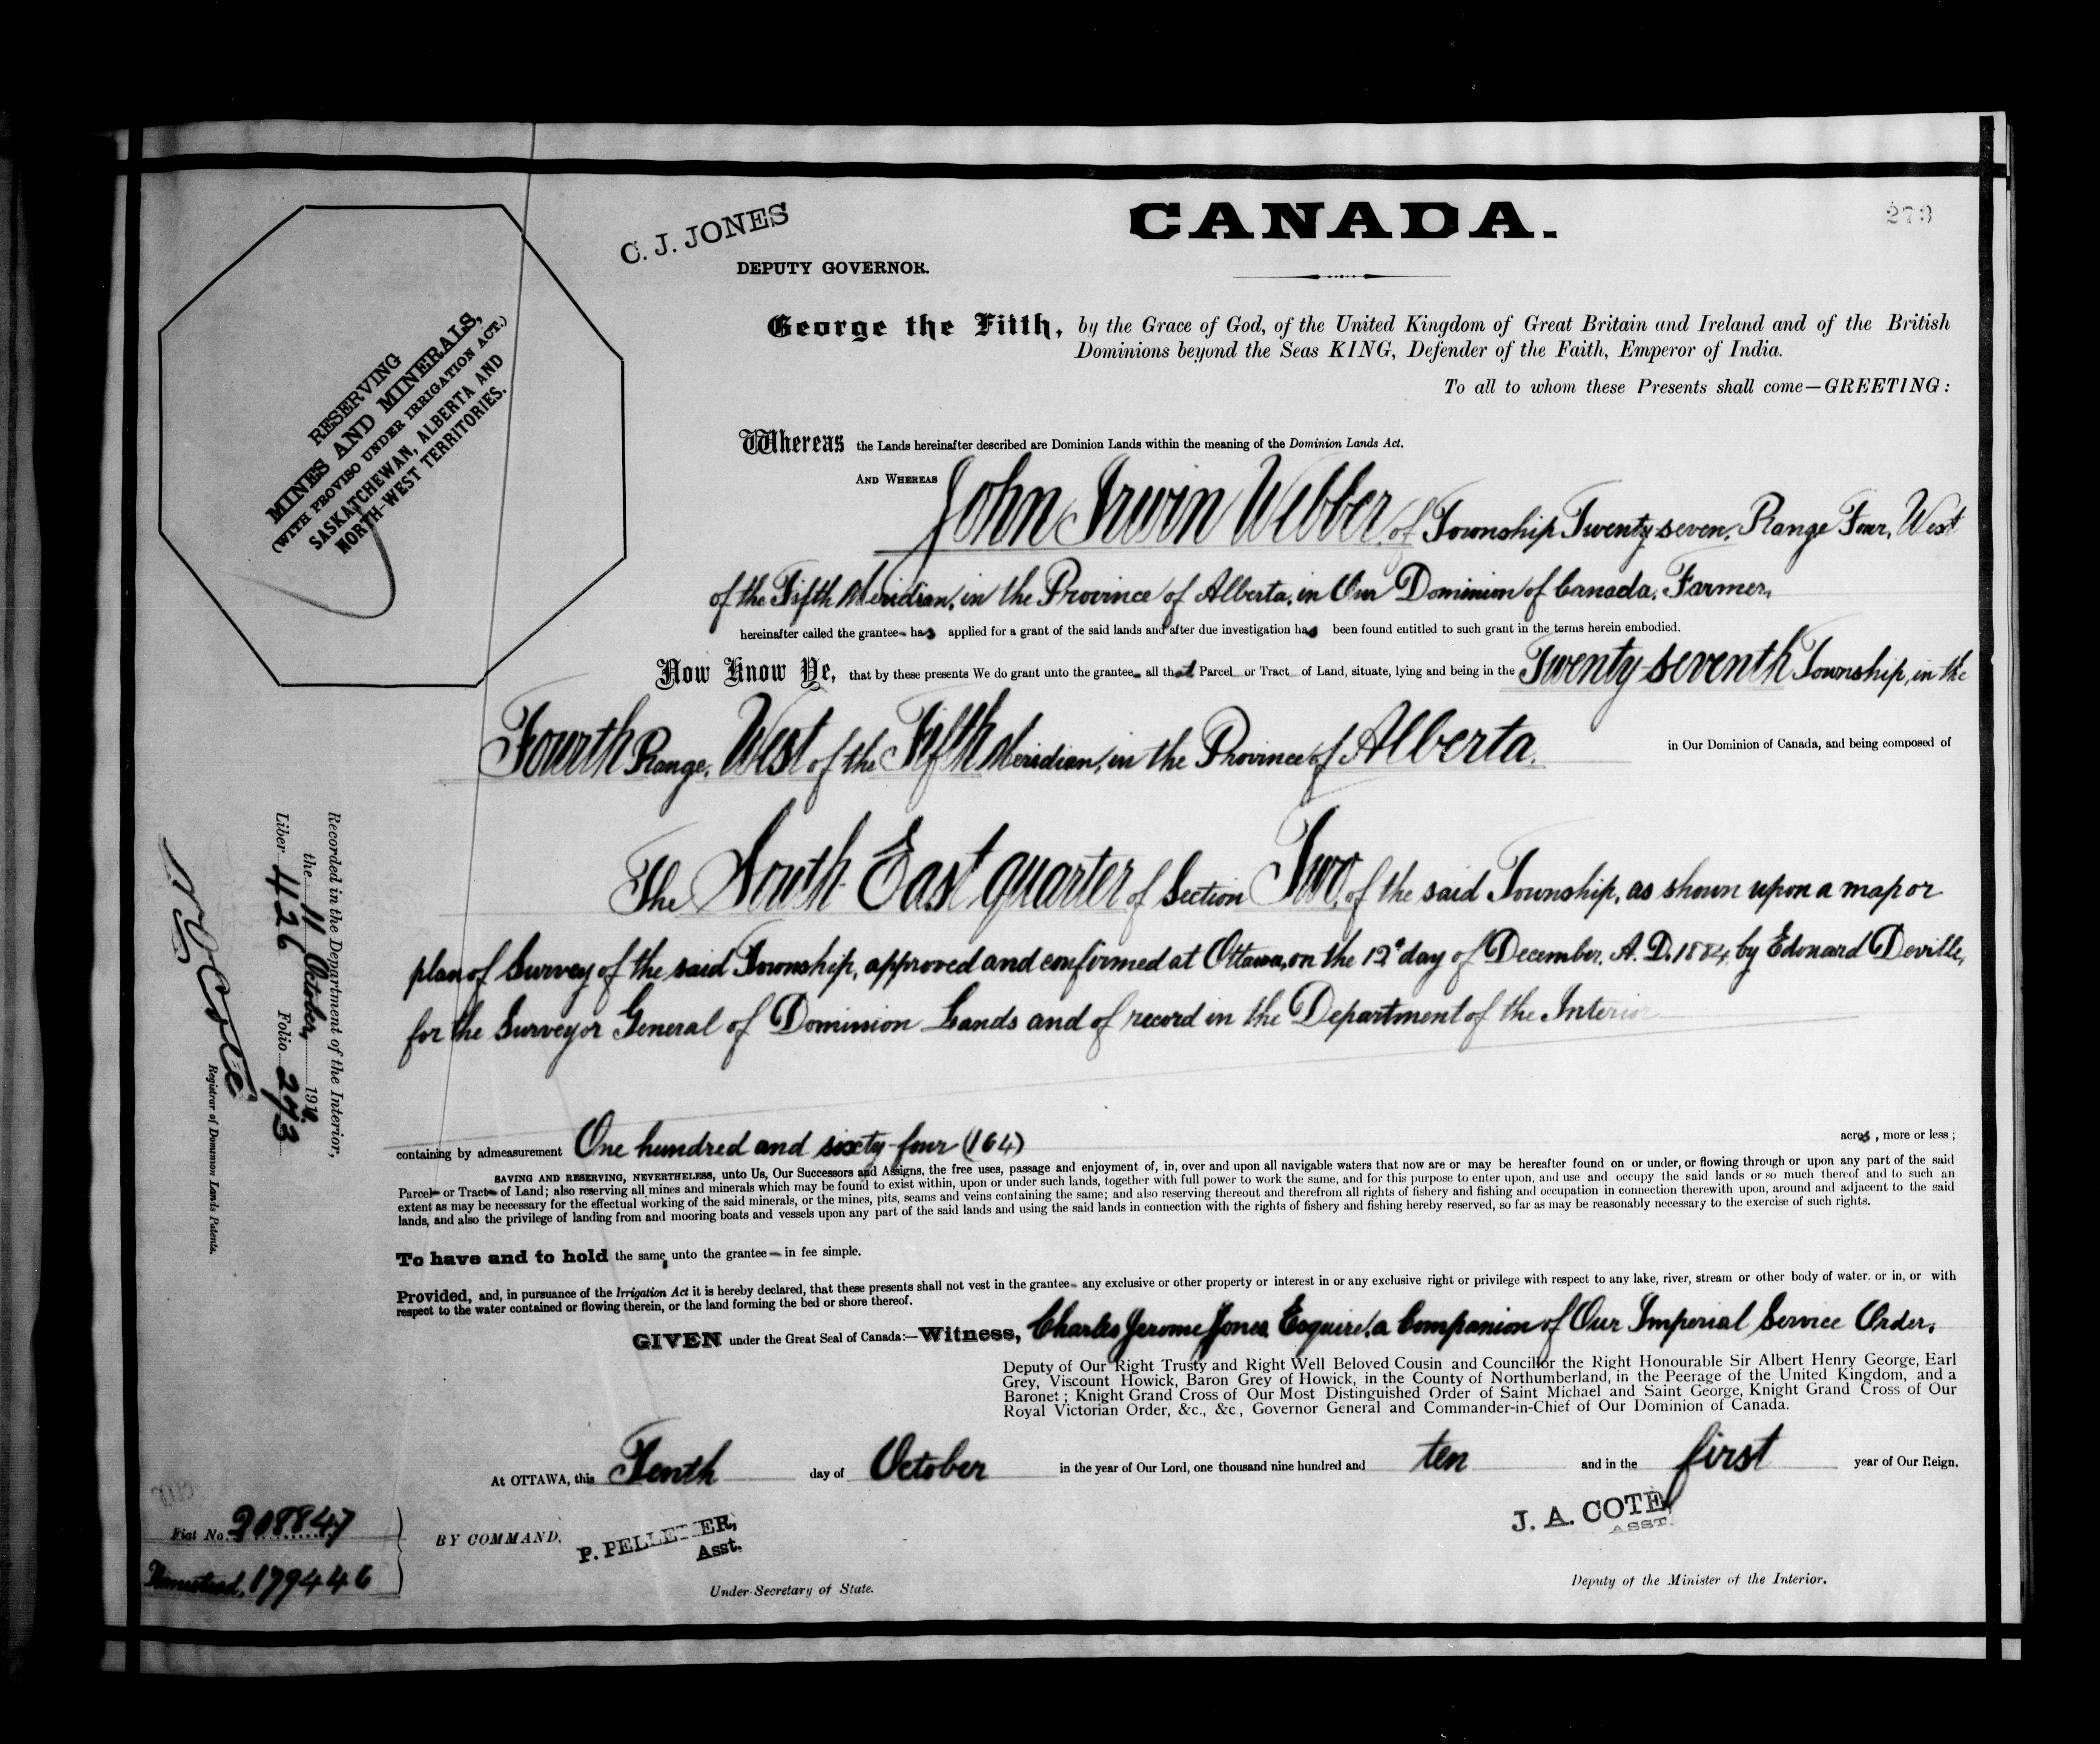 CANADA.
273
C. J. JONES
DEPUTY GOVERNOR.
RESERVING
MINES AND MINERALS,
(WITH PROVISO UNDER IRRIGATION ACT.)
SASKATCHEWAN, ALBERTA AND
NORTH-WEST TERRITORIES.
George the Fifth, by the Grace of God, of the United Kingdom of Great Britain and Ireland and of the British
Dominions beyond the Seas KING, Defender of the Faith, Emperor of India.
To all to whom these Presents shall come—GREETING:
Whereas the Lands hereinafter described are Dominion Lands within the meaning of the Dominion Lands Act.
AND WHEREAS John Irwin Webber, of Township Twenty-seven, Range Four, West
of the Fifth Meridian, in the Province of Alberta, in Our Dominion of Canada, Farmer,
hereinafter called the grantee has applied for a grant of the said lands and after due investigation has been found entitled to such grant in the terms herein embodied.
Now Know Ye, that by these presents We do grant unto the grantee all that Parcel or Tract of Land, situate, lying and being in the Twenty-seventh Township, in the
Fourth Range, West of the Fifth Meridian, in the Province of Alberta, in Our Dominion of Canada, and being composed of
The South East quarter of Section Two, of the said Township, as shown upon a map or
plan of Survey of the said Township, approved and confirmed at Ottawa, on the 12th day of December, A. D. 1884, by Edouard Deville,
for the Surveyor General of Dominion Lands and of record in the Department of the Interior
containing by admeasurement One hundred and sixty-four (164) acres, more or less;
SAVING AND RESERVING, NEVERTHELESS, unto Us, Our Successors and Assigns, the free uses, passage and enjoyment of, in, over and upon all navigable waters that now are or may be hereafter found on or under, or flowing through or upon any part of the said
Parcel or Tract of Land; also reserving all mines and minerals which may be found to exist within, upon or under such lands, together with full power to work the same, and for this purpose to enter upon, and use and occupy the said lands or so much thereof and to such an
extent as may be necessary for the effectual working of the said minerals, or the mines, pits, seams and veins containing the same; and also reserving thereout and therefrom all rights of fishery and fishing and occupation in connection therewith upon, around and adjacent to the said
lands, and also the privilege of landing from and mooring boats and vessels upon any part of the said lands and using the said lands in connection with the rights of fishery and fishing hereby reserved, so far as may be reasonably necessary to the exercise of such rights.
To have and to hold the same, unto the grantee in fee simple.
Provided, and, in pursuance of the Irrigation Act it is hereby declared, that these presents shall not vest in the grantee any exclusive or other property or interest in or any exclusive right or privilege with respect to any lake, river, stream or other body of water, or in, or with
respect to the water contained or flowing therein, or the land forming the bed or shore thereof.
GIVEN under the Great Seal of Canada:—Witness, Charles Jerome Jones, Esquire, a Companion of Our Imperial Service Order,
Deputy of Our Right Trusty and Right Well Beloved Cousin and Councillor the Right Honourable Sir Albert Henry George, Earl
Grey, Viscount Howick, Baron Grey of Howick, in the County of Northumberland, in the Peerage of the United Kingdom, and a
Baronet; Knight Grand Cross of Our Most Distinguished Order of Saint Michael and Saint George, Knight Grand Cross of Our
Royal Victorian Order, &c., &c., Governor General and Commander-in-Chief of Our Dominion of Canada.
At OTTAWA, this Tenth day of October in the year of Our Lord, one thousand nine hundred and ten and in the first year of Our Reign.
BY COMMAND,
P. PELLETIER,
Asst.
Under-Secretary of State.
J. A. COTE
ASST.
Deputy of the Minister of the Interior.
Recorded in the Department of the Interior,
the 11 October, 1910.
Liber 426 Folio 273
Registrar of Dominion Lands Patents.
Fiat No. 208847
Homestead, 179446